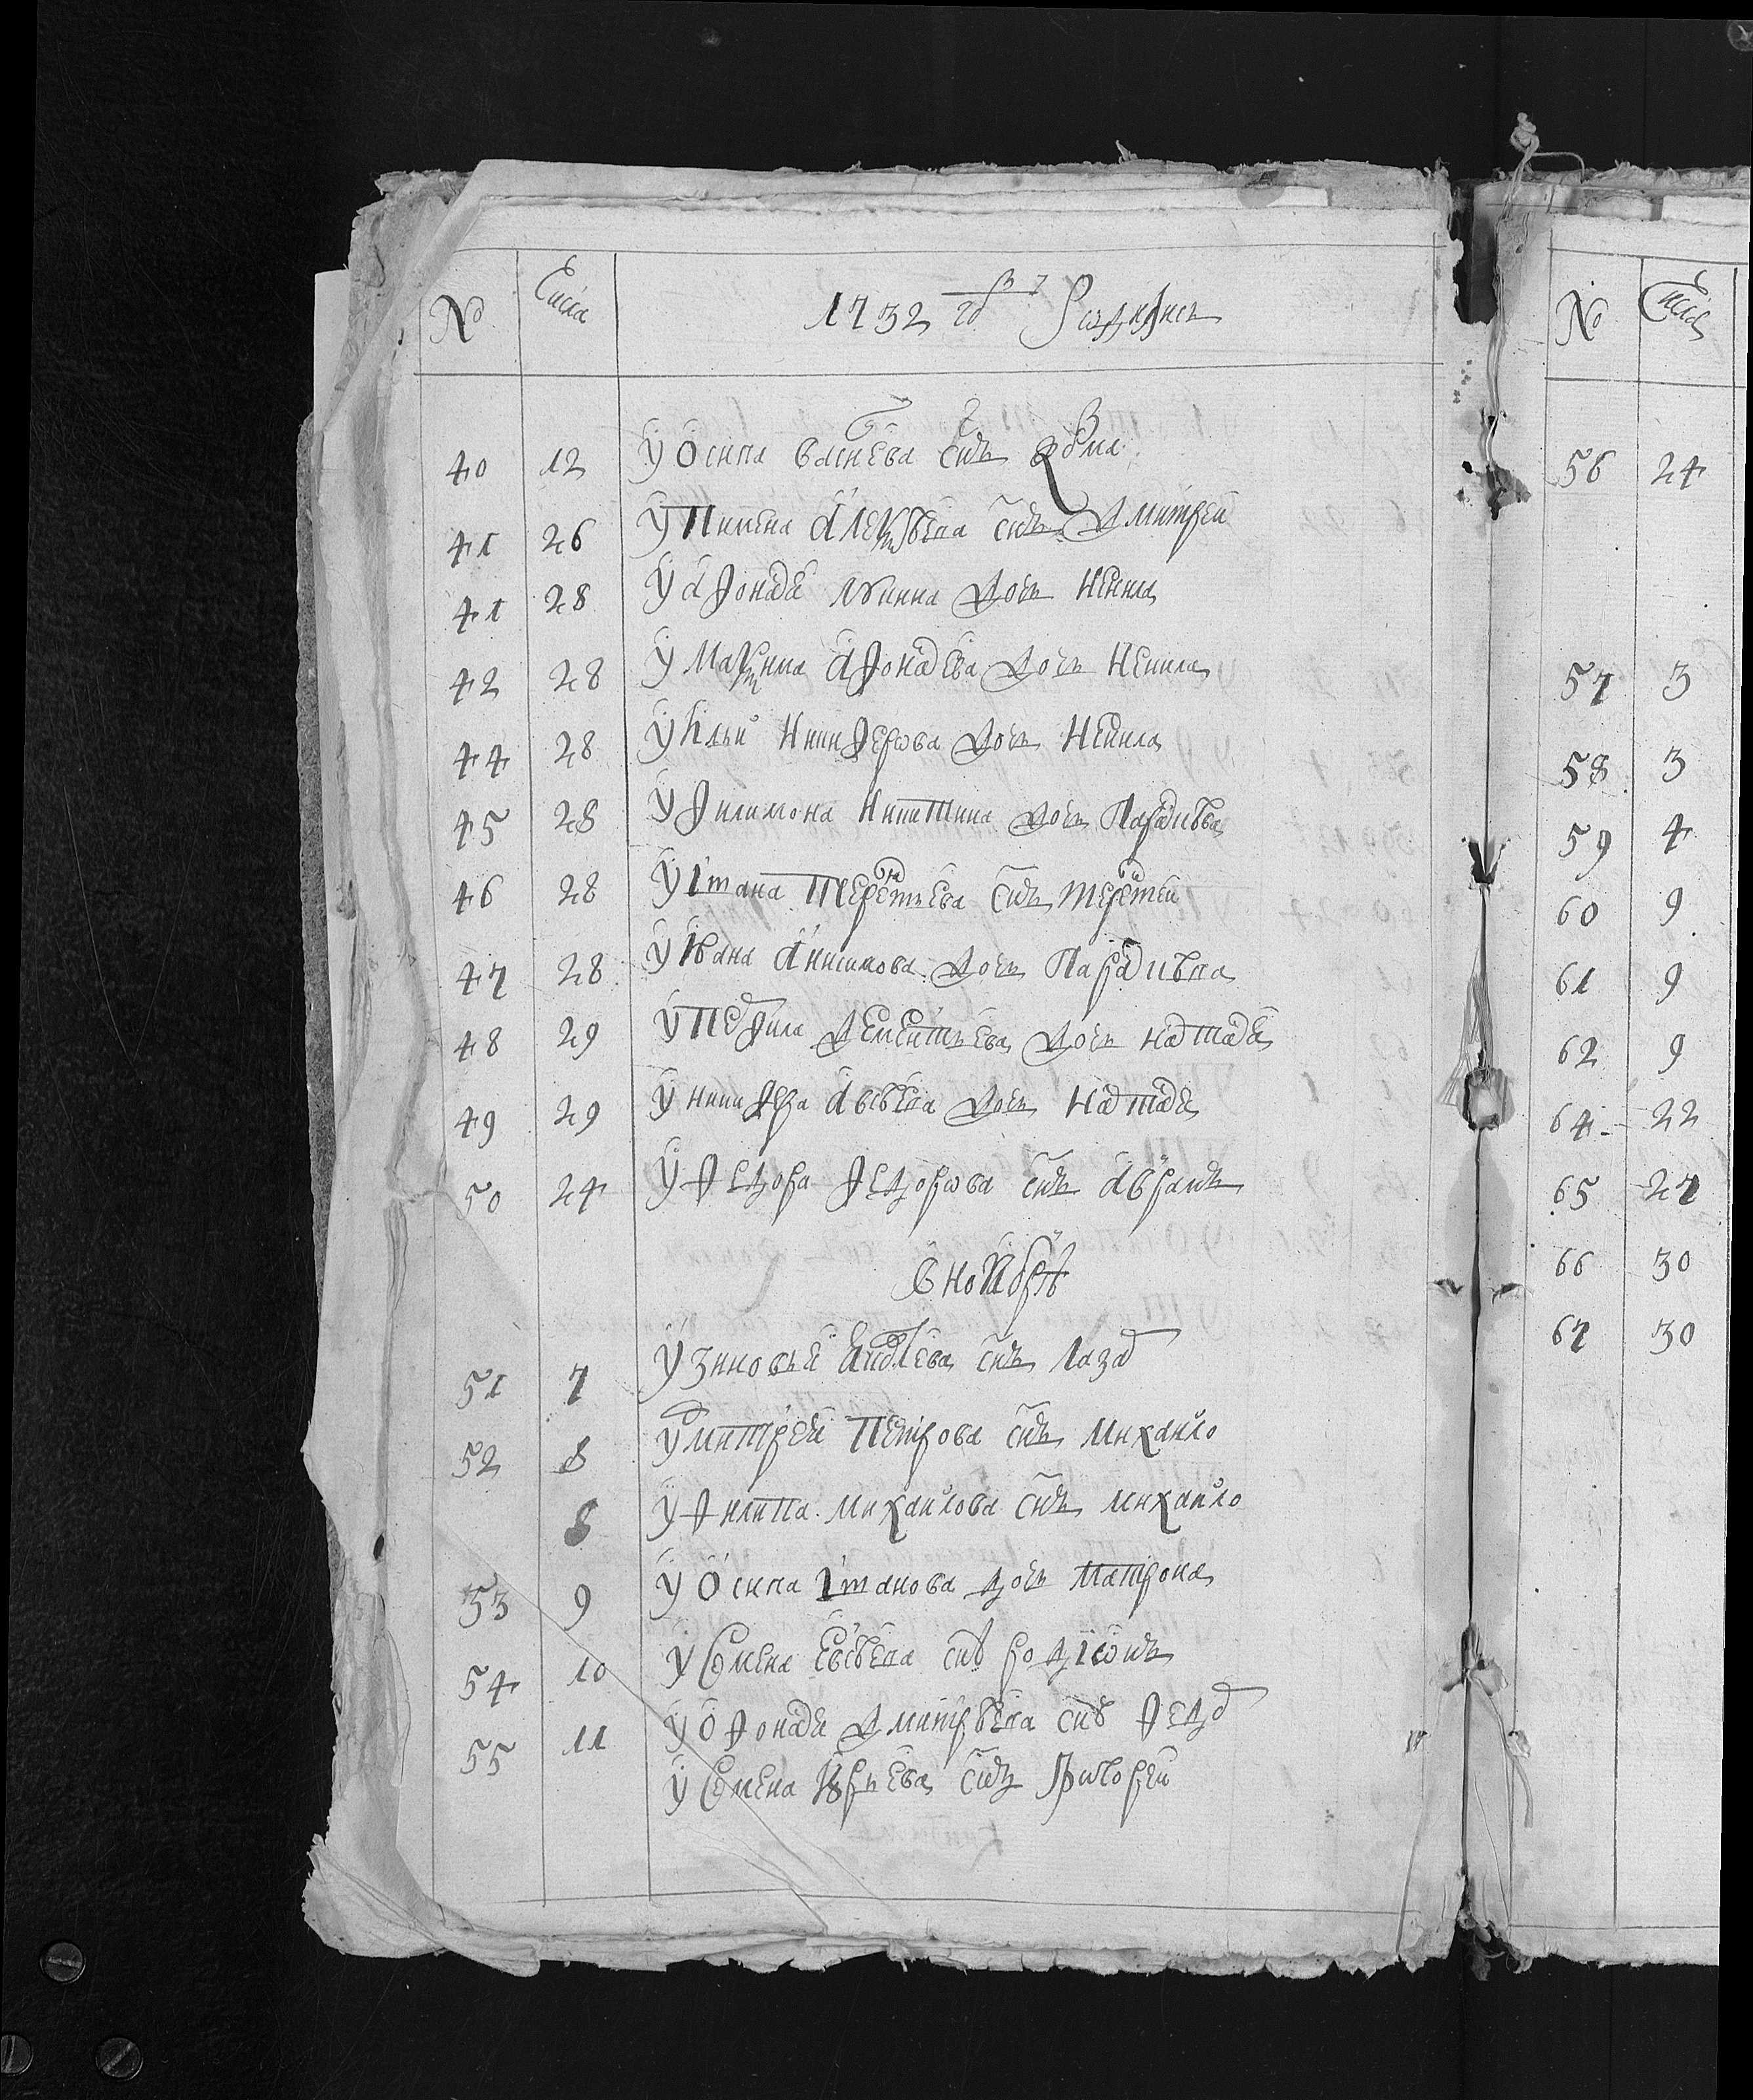 № Числа 1732 году Родились
40 12 У Осипа Василева снъ Кузма
41 26 У Пимена Алексѣева снъ Дмитреи
41 28 У Афонасе Лунина дочь Ненила
42 28 У Максима Афонасева дочь Ненила
44 28 У Ильи Никифорова дочь Ненила
45 28 У Филимона Никитина дочь Парасковьа
46 28 У Iвана Терентьева снъ Терентеи
47 28 У Iвана Анисимова дочь Парасковѣа
48 29 У Перфила Дементьева дочь Настасе
49 29 У Никифора Авсѣева дочь Настасе
50 24 У Федора Федорова снъ Аврамъ
В Ноябрѣ
51 7 У Зиновье снъ Лазар
52 8 У Митреи Петрова снъ Михаило
8 У Филипа Михаилова снъ Михаило
53 9 У Осипа Iванова дочь Матрона
54 10 У Семена Евсѣева снъ Родiонъ
55 11 У Офонасе Дмитрѣева снъ Федор
У Семена Юрьева снъ Григореи
№ Числа
56 24
57 3
58 3
59 4
60 9
61 9
62 9
64 22
65 27
66 30
67 30